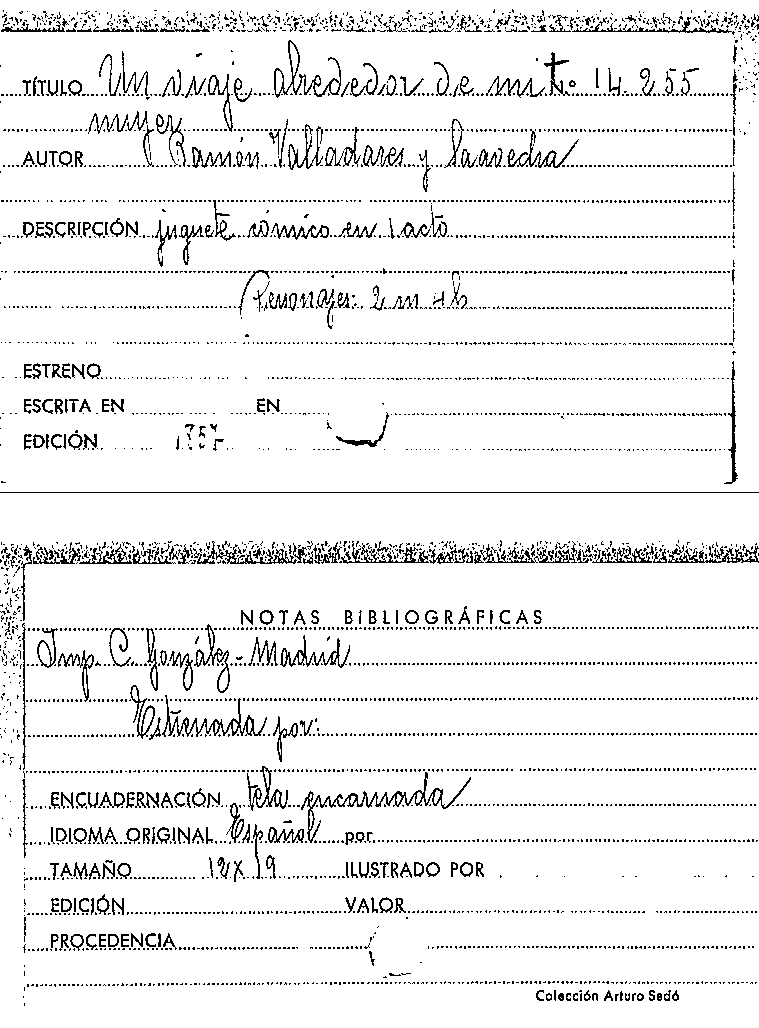 TÍTULO Un viaje alrededor de mi t. 14.255
mujer
AUTOR Ramón Valladares y Saavedra
DESCRIPCIÓN juguete cómico en 1 acto
Personajes: 2 m 4 h
ESTRENO
ESCRITA EN EN
EDICIÓN
NOTAS BIBLIOGRÁFICAS
Imp. C. González - Madrid
Estrenada por:
ENCUADERNACIÓN tela encarnada
IDIOMA ORIGINAL Español por
TAMAÑO 12 X 19 ILUSTRADO POR
EDICIÓN VALOR
PROCEDENCIA
Colección Arturo Sedó